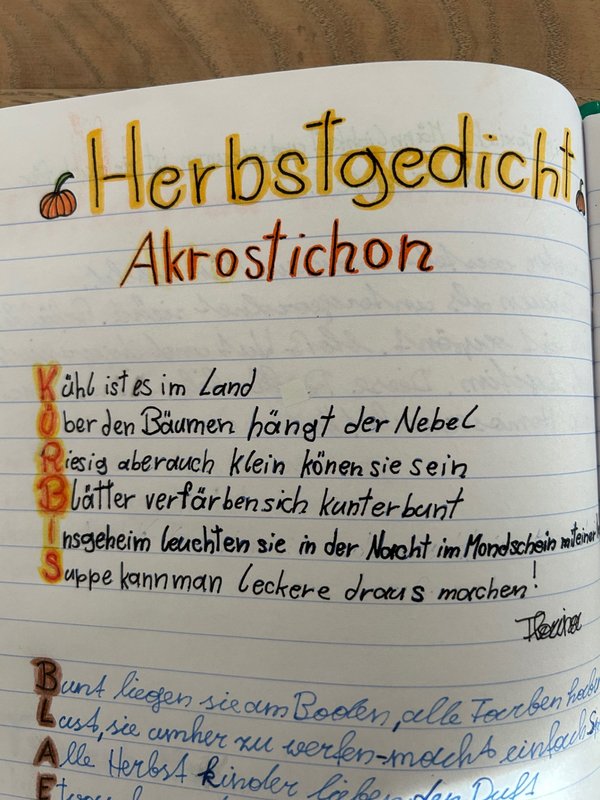 Herbstgedicht
Akrostichon
Kühl ist es im Land
Über den Bäumen hängt der Nebel
Riesig aber auch klein könen sie sein
Blätter verfärben sich kunterbunt
Insgeheim leuchten sie in der Nacht im Mondschein mit einer
Suppe kann man leckere draus machen!
Bunt liegen sie am Boden, alle Farben
Laub, sie umher zu werfen-macht einfach
Alle Herbstkinder lieben den Duft